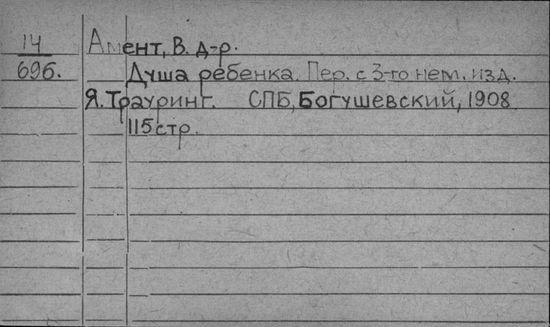 14 Амент, В. д-р.
696. Душа ребенка. Пер. с 3-го нем. изд.
Я. Трауринг. СПБ, Богушевский, 1908
115 стр.